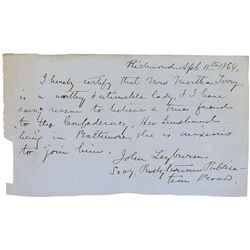 Richmond, Apl 11th 1864.
I hereby certify that Mrs Martha Terry
is a worthy & estimable lady, & I have
every reason to believe a true friend
to the Confederacy. Her husband
being in Baltimore, she is anxious
to join him.
John Leyburn,
Secy. Presbyterian Publica-
tion Board.